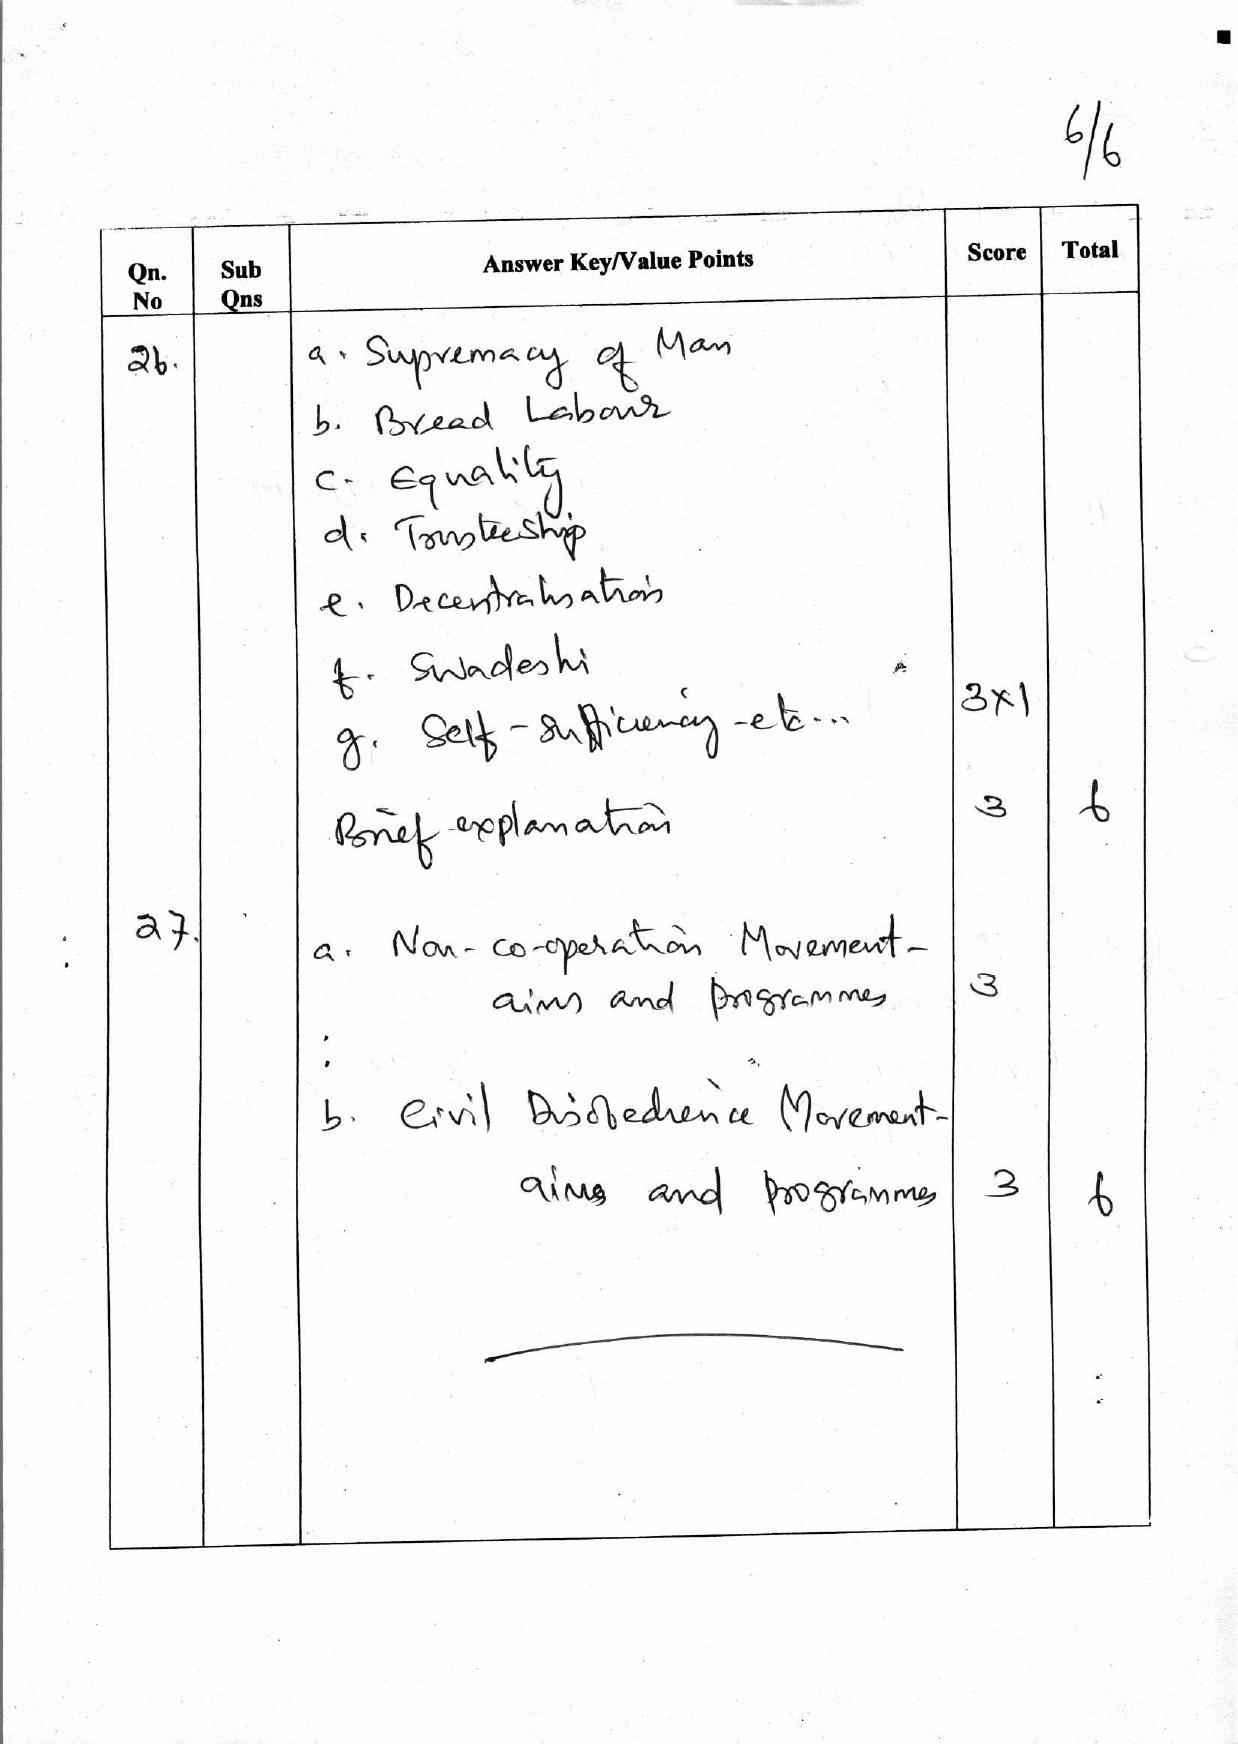 6/6
Qn. No
Sub Qns
Answer Key/Value Points
Score
Total
26.
a. Supremacy of Man
b. Bread Labour
c. Equality
d. Trusteeship
e. Decentralisation
f. Swadeshi
g. Self-sufficiency -etc...
3x1
Brief explanation
3
6
27.
a. Non-co-operation Movement-
aims and programmes
3
b. Civil Disobedience Movement-
aims and programmes
3
6